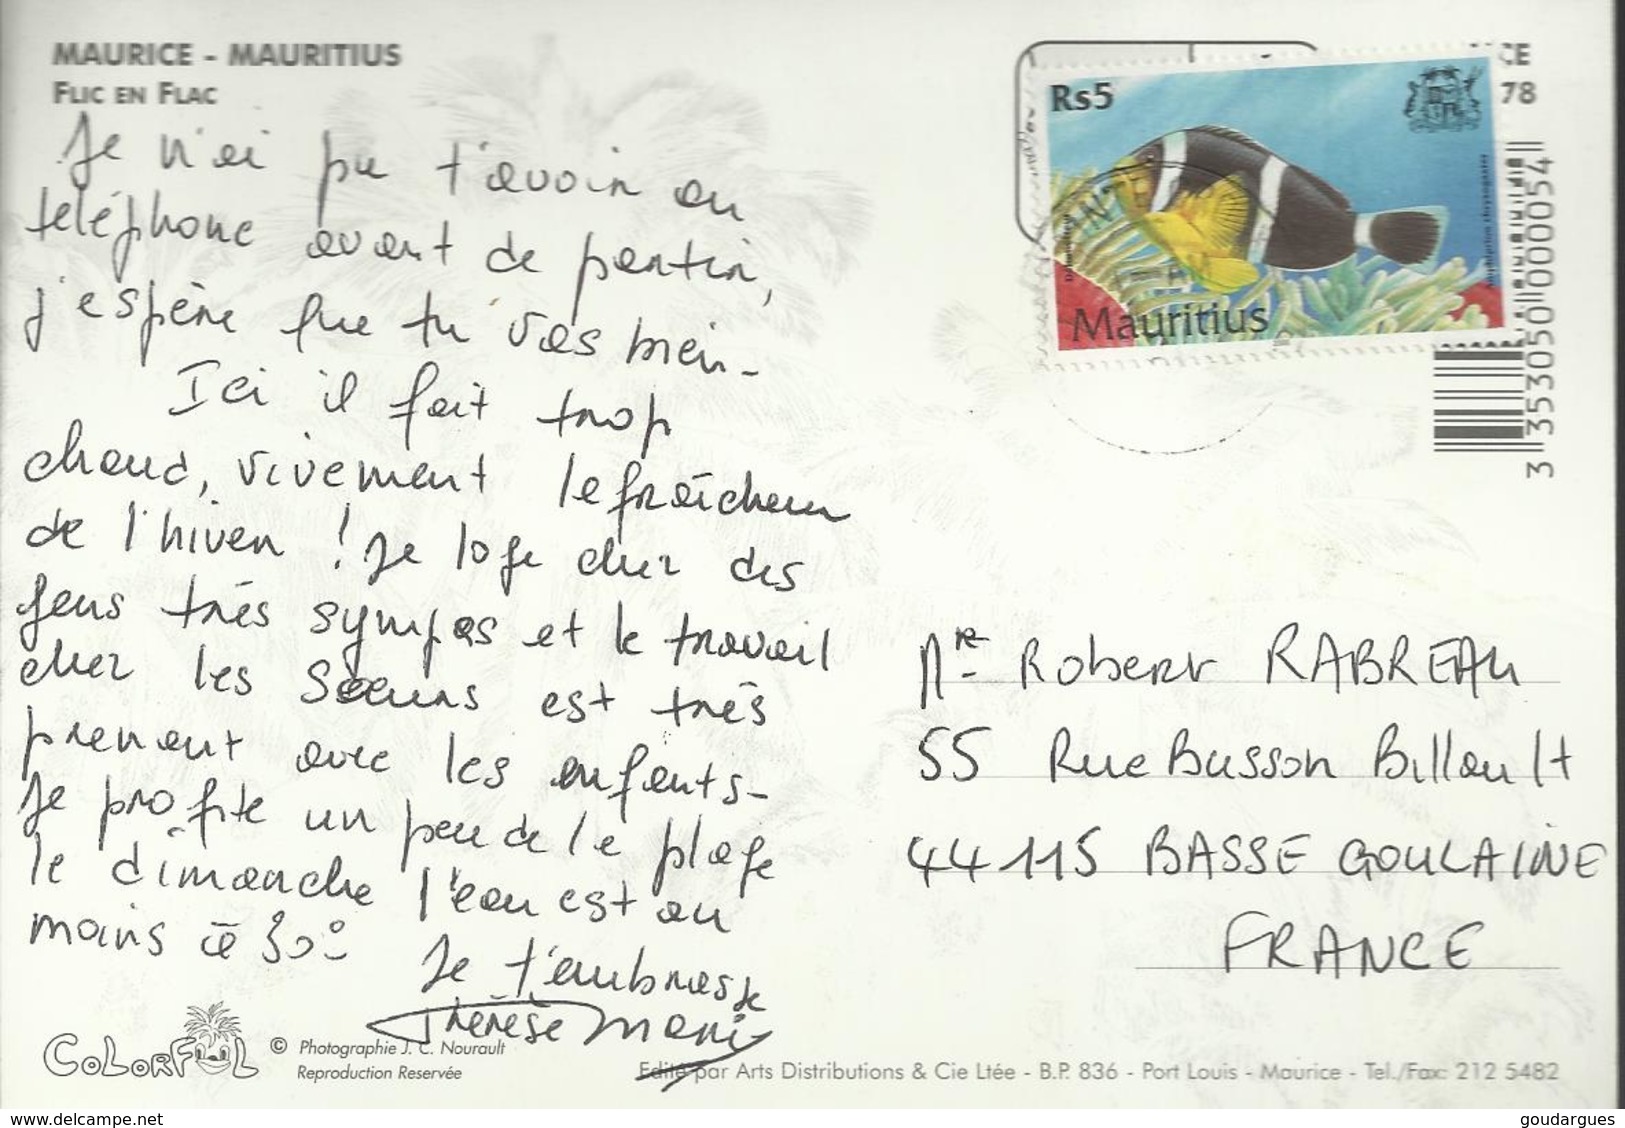 MAURICE - MAURITIUS
FLIC EN FLAC
Je n'ai pu t'avoir au
téléphone avant de partir,
j'espère que tu vas bien -
Ici il fait trop
chaud, vivement le fraîcheur
de l'hiver ! Je loge chez des
gens très sympas et le travail
chez les Soeurs est très
prenant avec les enfants -
Je profite un peu de le plage
le dimanche l'eau est au
moins à 30°
Je t'embrasse
Thérèse Marie
COLORFUL
© Photographie J. C. Nourault
Reproduction Reservée
Edité par Arts Distributions & Cie Ltée - B.P. 836 - Port Louis - Maurice - Tel./Fax: 212 5482
Rs5
Mauritius
CE
78
3 353050 000054
Mr Robert RABREAU
55 Rue Busson Billault
44115 BASSE GOULAINE
FRANCE
https://www.delcampe.net
goudargues